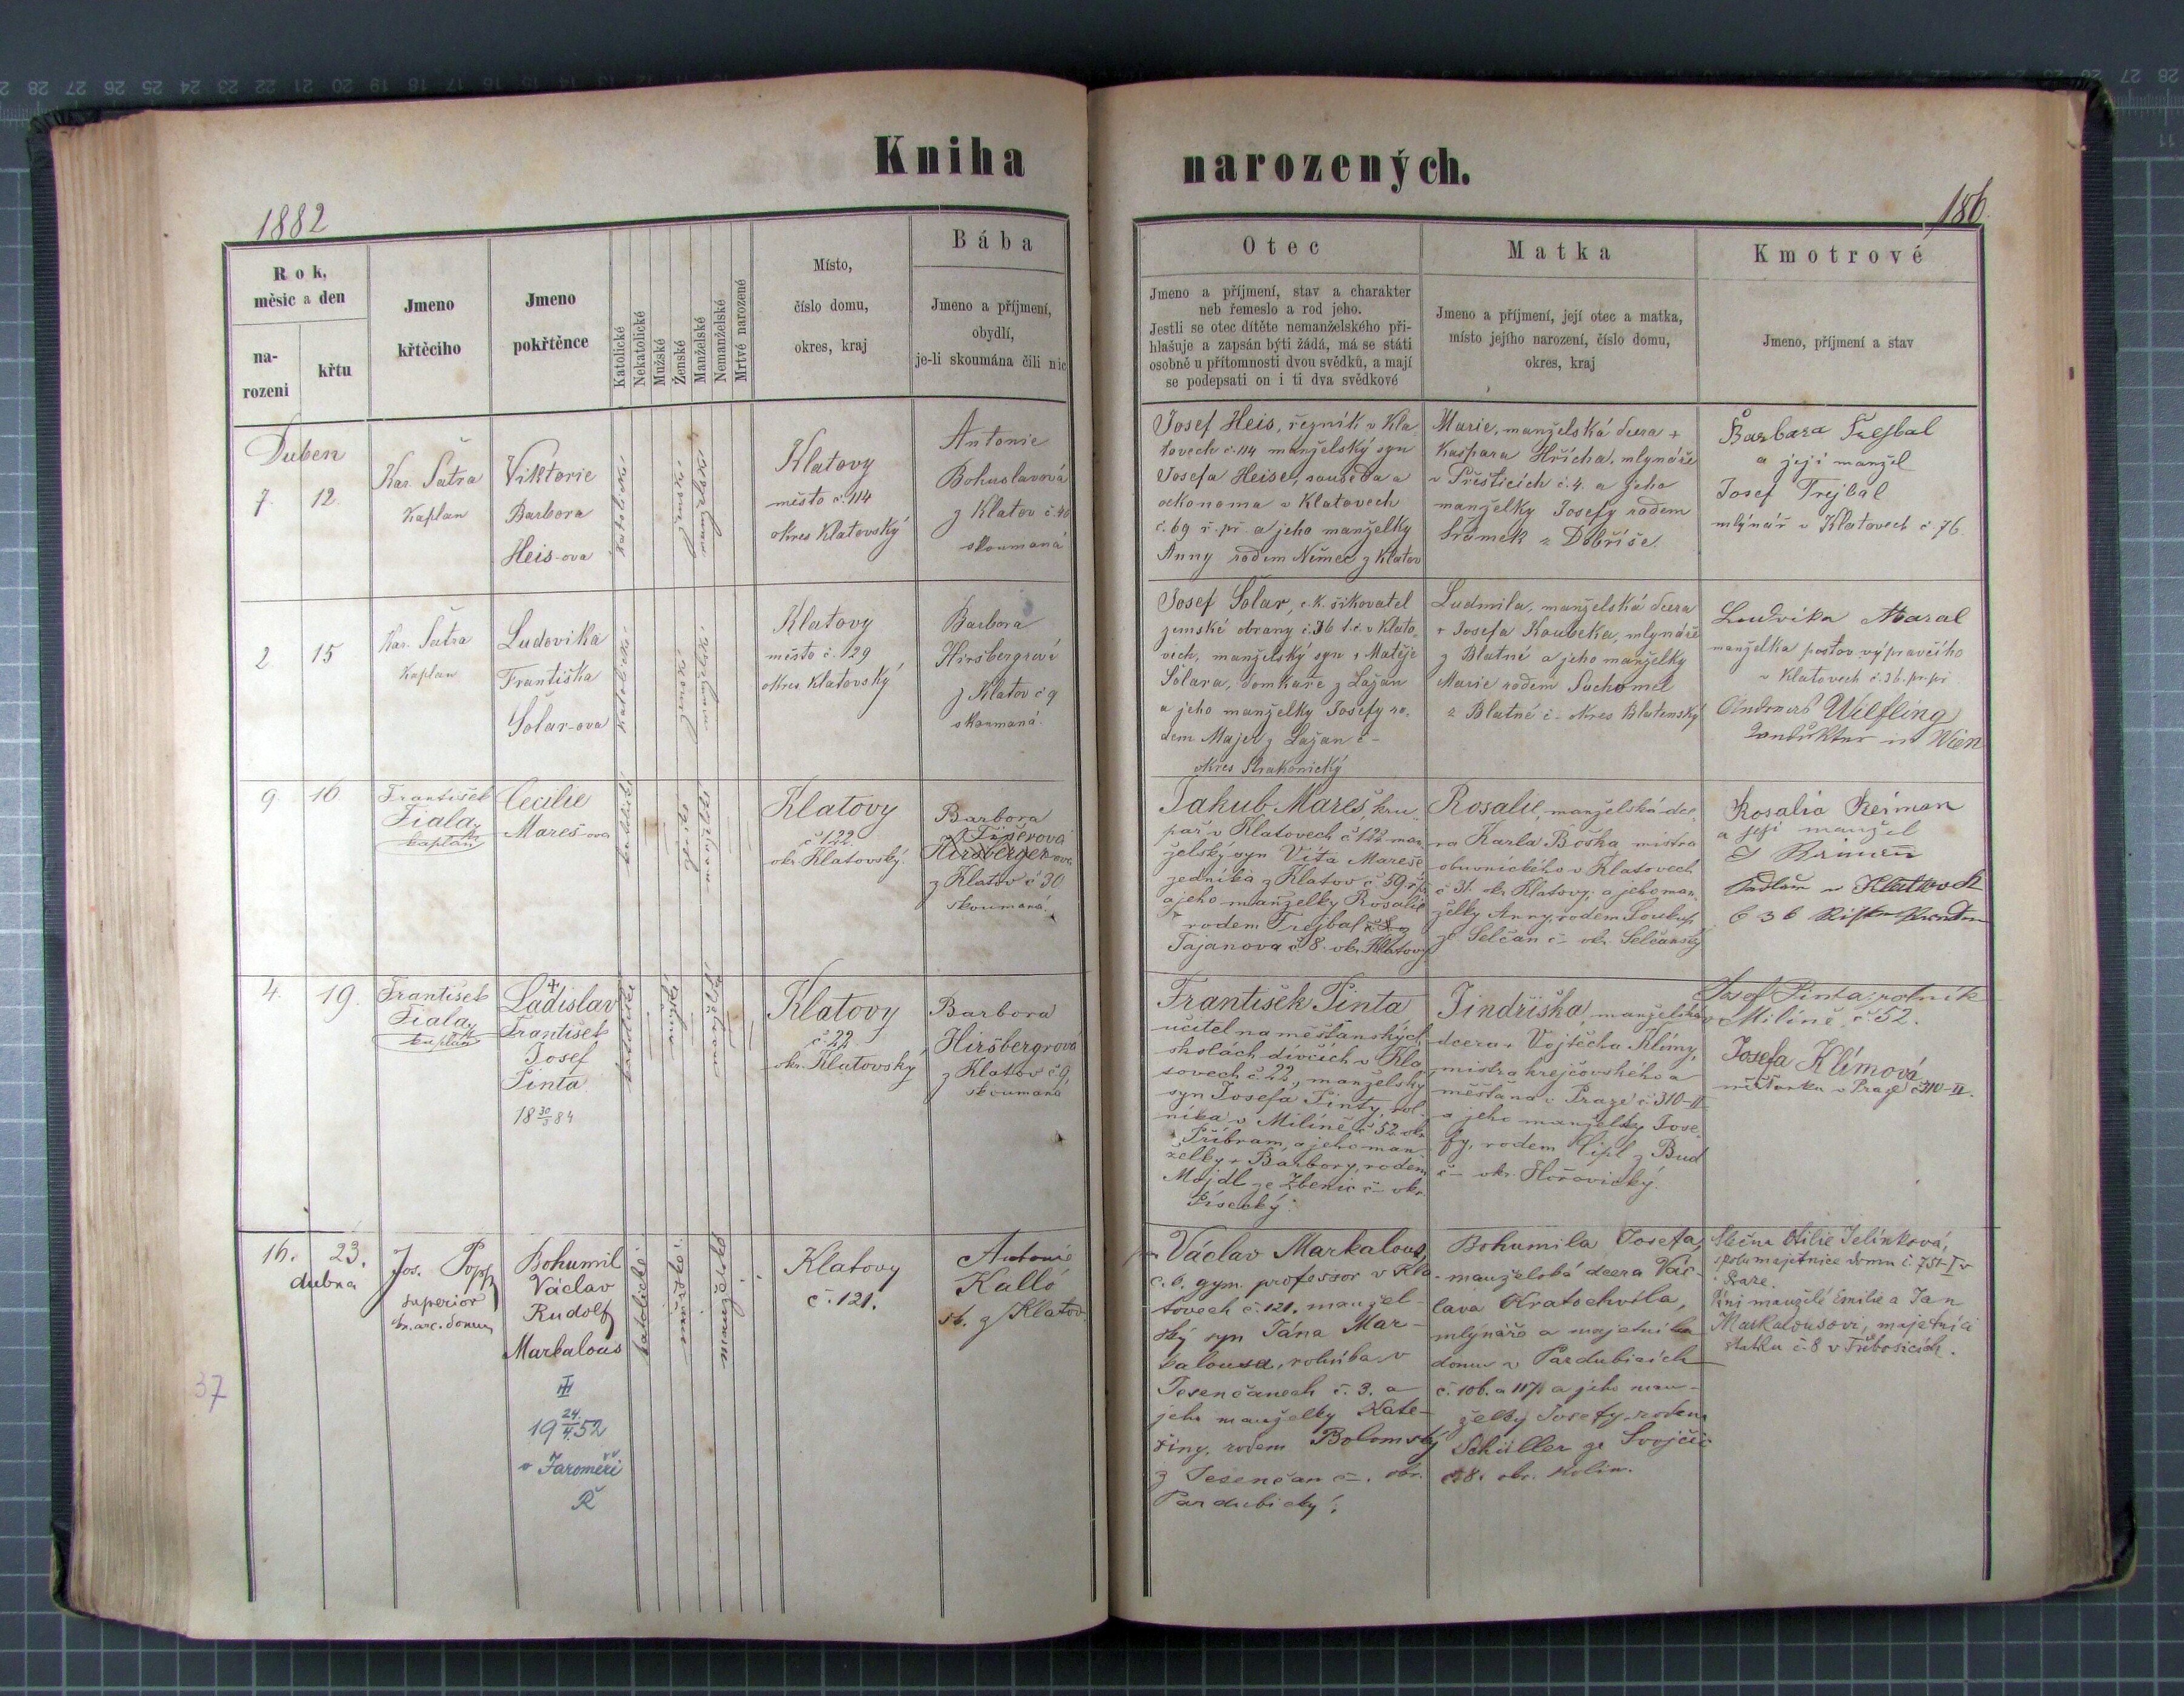 Kniha narozených.
1882
186.
Rok,
měsíc a den
na-
rozeni
křtu
Jmeno
křtěcího
Jmeno
pokřtěnce
Katolické
Nekatolické
Mužské
Ženské
Manželské
Nemanželské
Mrtvé narozené
Místo,
číslo domu,
okres, kraj
Bába
Jmeno a příjmení,
obydlí,
je-li skoumána čili nic
Otec
Jmeno a příjmení, stav a charakter
neb řemeslo a rod jeho.
Jestli se otec dítěte nemanželského při-
hlašuje a zapsán býti žádá, má se státi
osobně u přítomnosti dvou svědků, a mají
se podepsati on i ti dva svědkové
Matka
Jmeno a příjmení, její otec a matka,
místo jejího narození, číslo domu,
okres, kraj
Kmotrové
Jmeno, příjmení a stav
Duben
7. 12.
Kar. Šatra
Kaplan
Viktorie
Barbora
Heis-ova
katolické
ženské
manželské
Klatovy
město č. 114
okres Klatovský
Antonie
Bohuslavová
z Klatov č. 40
skoumaná
Josef Heis, řezník v Kla
tovech č. 114 manželský syn
Josefa Heise, souseda a
oekonoma v Klatovech
č. 69 ř. př. a jeho manželky
Anny rodem Němec z Klatov
Marie, manželská dcera +
Kašpara Hřícha, mlynáře
v Přešticích č. 4. a jeho
manželky Josefy rodem
Šrámek z Dobříše.
Barbara Trejbal
a její manžel
Josef Trejbal
mlýnář v Klatovech č 76.
2 15
Kar. Šatra
Kaplan
Ludovika
Františka
Šolar-ova
katolické
ženské
manželské
Klatovy
město č. 129
okres Klatovský
Barbora
Hirsbergrová
z Klatov č 9
skoumaná.
Josef Šolar, c.k. šikovatel
zemské obrany č. 36 t.č. v Klato-
vech, manželský syn + Matěje
Šolara, domkaře z Lažan
a jeho manželky Josefy ro-
dem Majer z Lažan č -
okres Strakonický
Ludmila, manželská dcera
+ Josefa Koubeka, mlynáře
z Blatné a jeho manželky
Marie rodem Suchomel
z Blatné č - okres Blatenský
Ludvika Maral
manželka poštov. výpravčího
v Klatovech č. 36. pr. př.
Andreas Wilfling
Condukteur in Wien
9. 16.
František
Fiala
kaplan
Cecilie
Mareš-ova
katolické
ženské
manželské
Klatovy
č 122.
okr. Klatovský.
Barbora
Hirsberger-ova
z Klatov č 30
skoumaná.
Jakub Mareš, kru-
pař v Klatovech č 122 man-
želský syn Víta Mareše
zedníka z Klatov č 59 ř. p.
a jeho manželky Rosalie
rodem Trejbal
Tajanova č 8. okr. Klatovy
Rosalie, manželská dce-
ra Karla Boška, mistra
obuvnického v Klatovech
č 31. okr. Klatovy; a jeho man-
želky Anny, rodem Soukup
ze Selčan č - okr. Selčanský
Rosalia Reiman
a její manžel
4. 19.
František
Fiala
kaplan
Ladislav
František
Josef
Pinta
18 30/5 84
katolické
mužské
manželské
Klatovy
č 22
okr. Klatovský
Barbora
Hiršbergrová
z Klatov č 9,
skoumaná
František Pinta
učitel na měšťanských
školách dívčích v Kla
tovech č 22, manželský
syn Josefa Pinty, rol-
níka v Milíně č 52. okr.
Příbram, a jeho man-
želky + Barbory, rodem
Majdl ze Zbenic č - okr.
Písecký.
Jindřiška, manželská
dcera + Vojtěcha Klímy,
mistra krejčovského a
měšťana v Praze č. 310-II
a jeho manželky Jose-
fy, rodem Hipl z Bud
č - okr. Hořovický.
Josef Pinta, rolník
v Milíně č. 52.
Josefa Klímová
měšťanka v Praze č 310-II.
16. 23.
dubna
Jos. Popp
superior
Bohumil
Václav
Rudolf
Markalous
III
19 24./4. 52
v Jaroměři
Ř
katolické
mužské
manželské
Klatovy
č. 121.
Antonie
Kalló
sk. z Klatov
Václav Markalous,
c. k. gym. professor v Kla-
tovech č. 121. manžel-
ský syn Jána Mar-
kalousa, rolníka v
Jesenčanech č. 3. a
jeho manželky Kate-
řiny, rodem Bolomský
z Jesenčan č -. okr.
Pardubický.
Bohumila Josefa,
manželská dcera Vác-
lava Kratochvíla,
mlýnáře a majetníka
domu v Pardubicích
č. 106. a 117 a jeho man-
želky Josefy, rodem
Schüller ze Svojšic
č 8. okr. Kolín.
Slečna Otilie Jelínková,
spolumajetnice domu č. 751-I v
Praze.
Páni manželé Emilie a Jan
Markalousovi, majetníci
statku č. 8 v Tuhosicích.
37